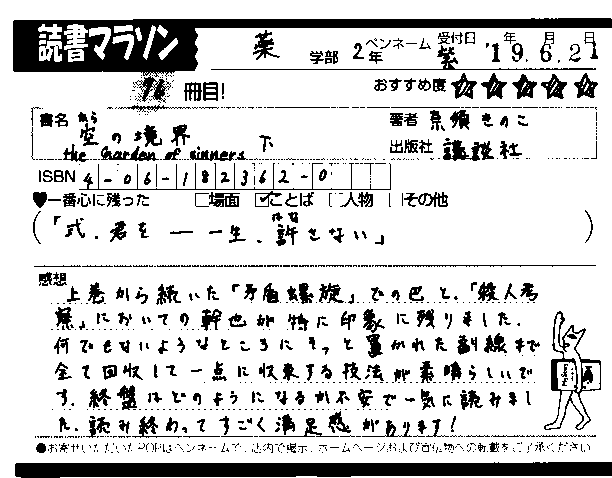 読書マラソン
薬 学部 2年 ペンネーム 紫 受付日 '19年 6月 21日
76 冊目! おすすめ度 ☆☆☆☆☆
書名 空の境界 下 著者 奈須きのこ
から
the Garden of sinners 出版社 講談社
ISBN 4-06-182362-0
♥一番心に残った □場面 ☑ことば □人物 □その他
(「式、君を――一生、許さない」)
はな
感想
上巻から続いた「矛盾螺旋」での巴と、「殺人考
察」においての幹也が特に印象に残りました。
何でもないようなところにそっと置かれた副線まで
全て回収して一点に収束する技法が素晴らしいで
す。終盤はどのようになるか不安で一気に読みまし
た。読み終わってすごく満足感があります!
●お寄せいただいたPOPはペンネームで、店内で掲示、ホームページおよび宣伝物への転載をご了承ください